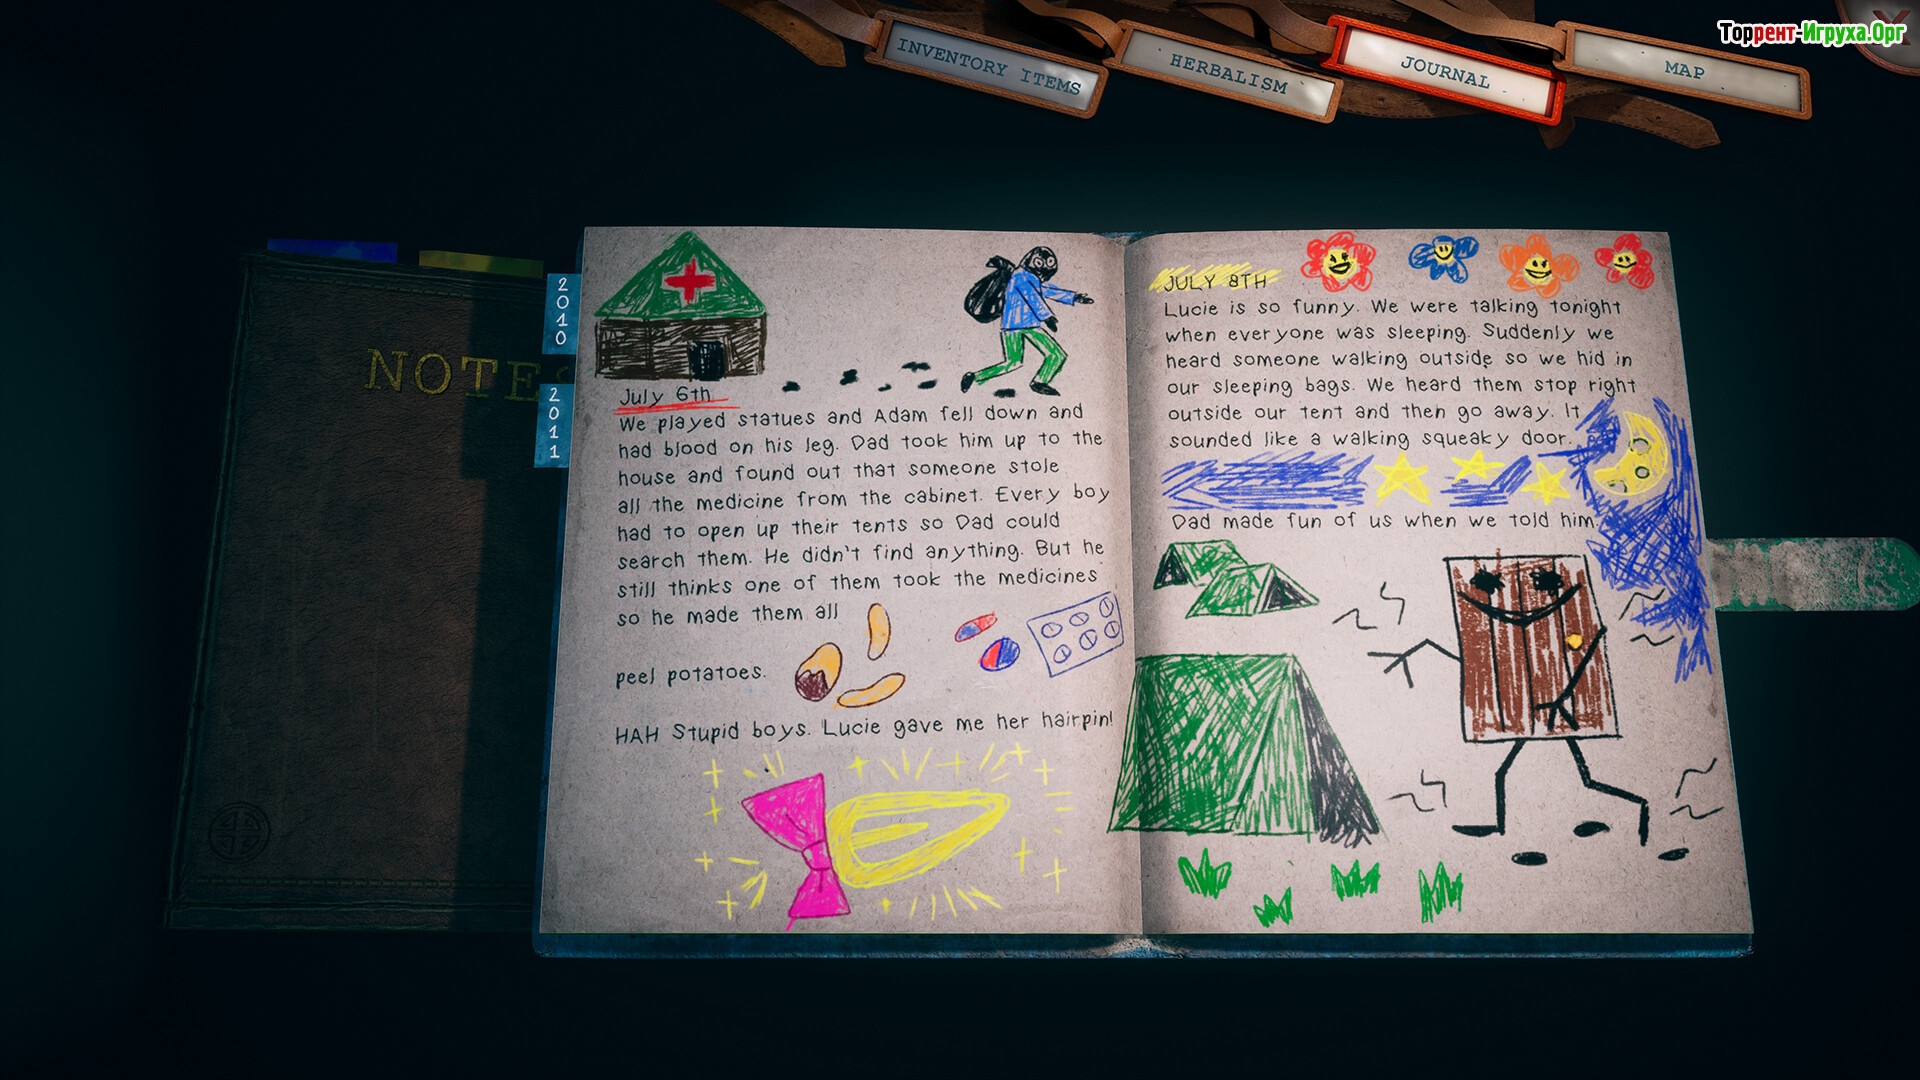 INVENTORY ITEMS
HERBALISM
JOURNAL
MAP
Торрент-Игруха.Орг
X
NOTES
2010
2011
July 6th
We played statues and Adam fell down and
had blood on his leg. Dad took him up to the
house and found out that someone stole
all the medicine from the cabinet. Every boy
had to open up their tents so Dad could
search them. He didn't find anything. But he
still thinks one of them took the medicines
so he made them all
peel potatoes.
HAH Stupid boys. Lucie gave me her hairpin!
JULY 8TH
Lucie is so funny. We were talking tonight
when everyone was sleeping. Suddenly we
heard someone walking outside so we hid in
our sleeping bags. We heard them stop right
outside our tent and then go away. It
sounded like a walking squeaky door.
Dad made fun of us when we told him.